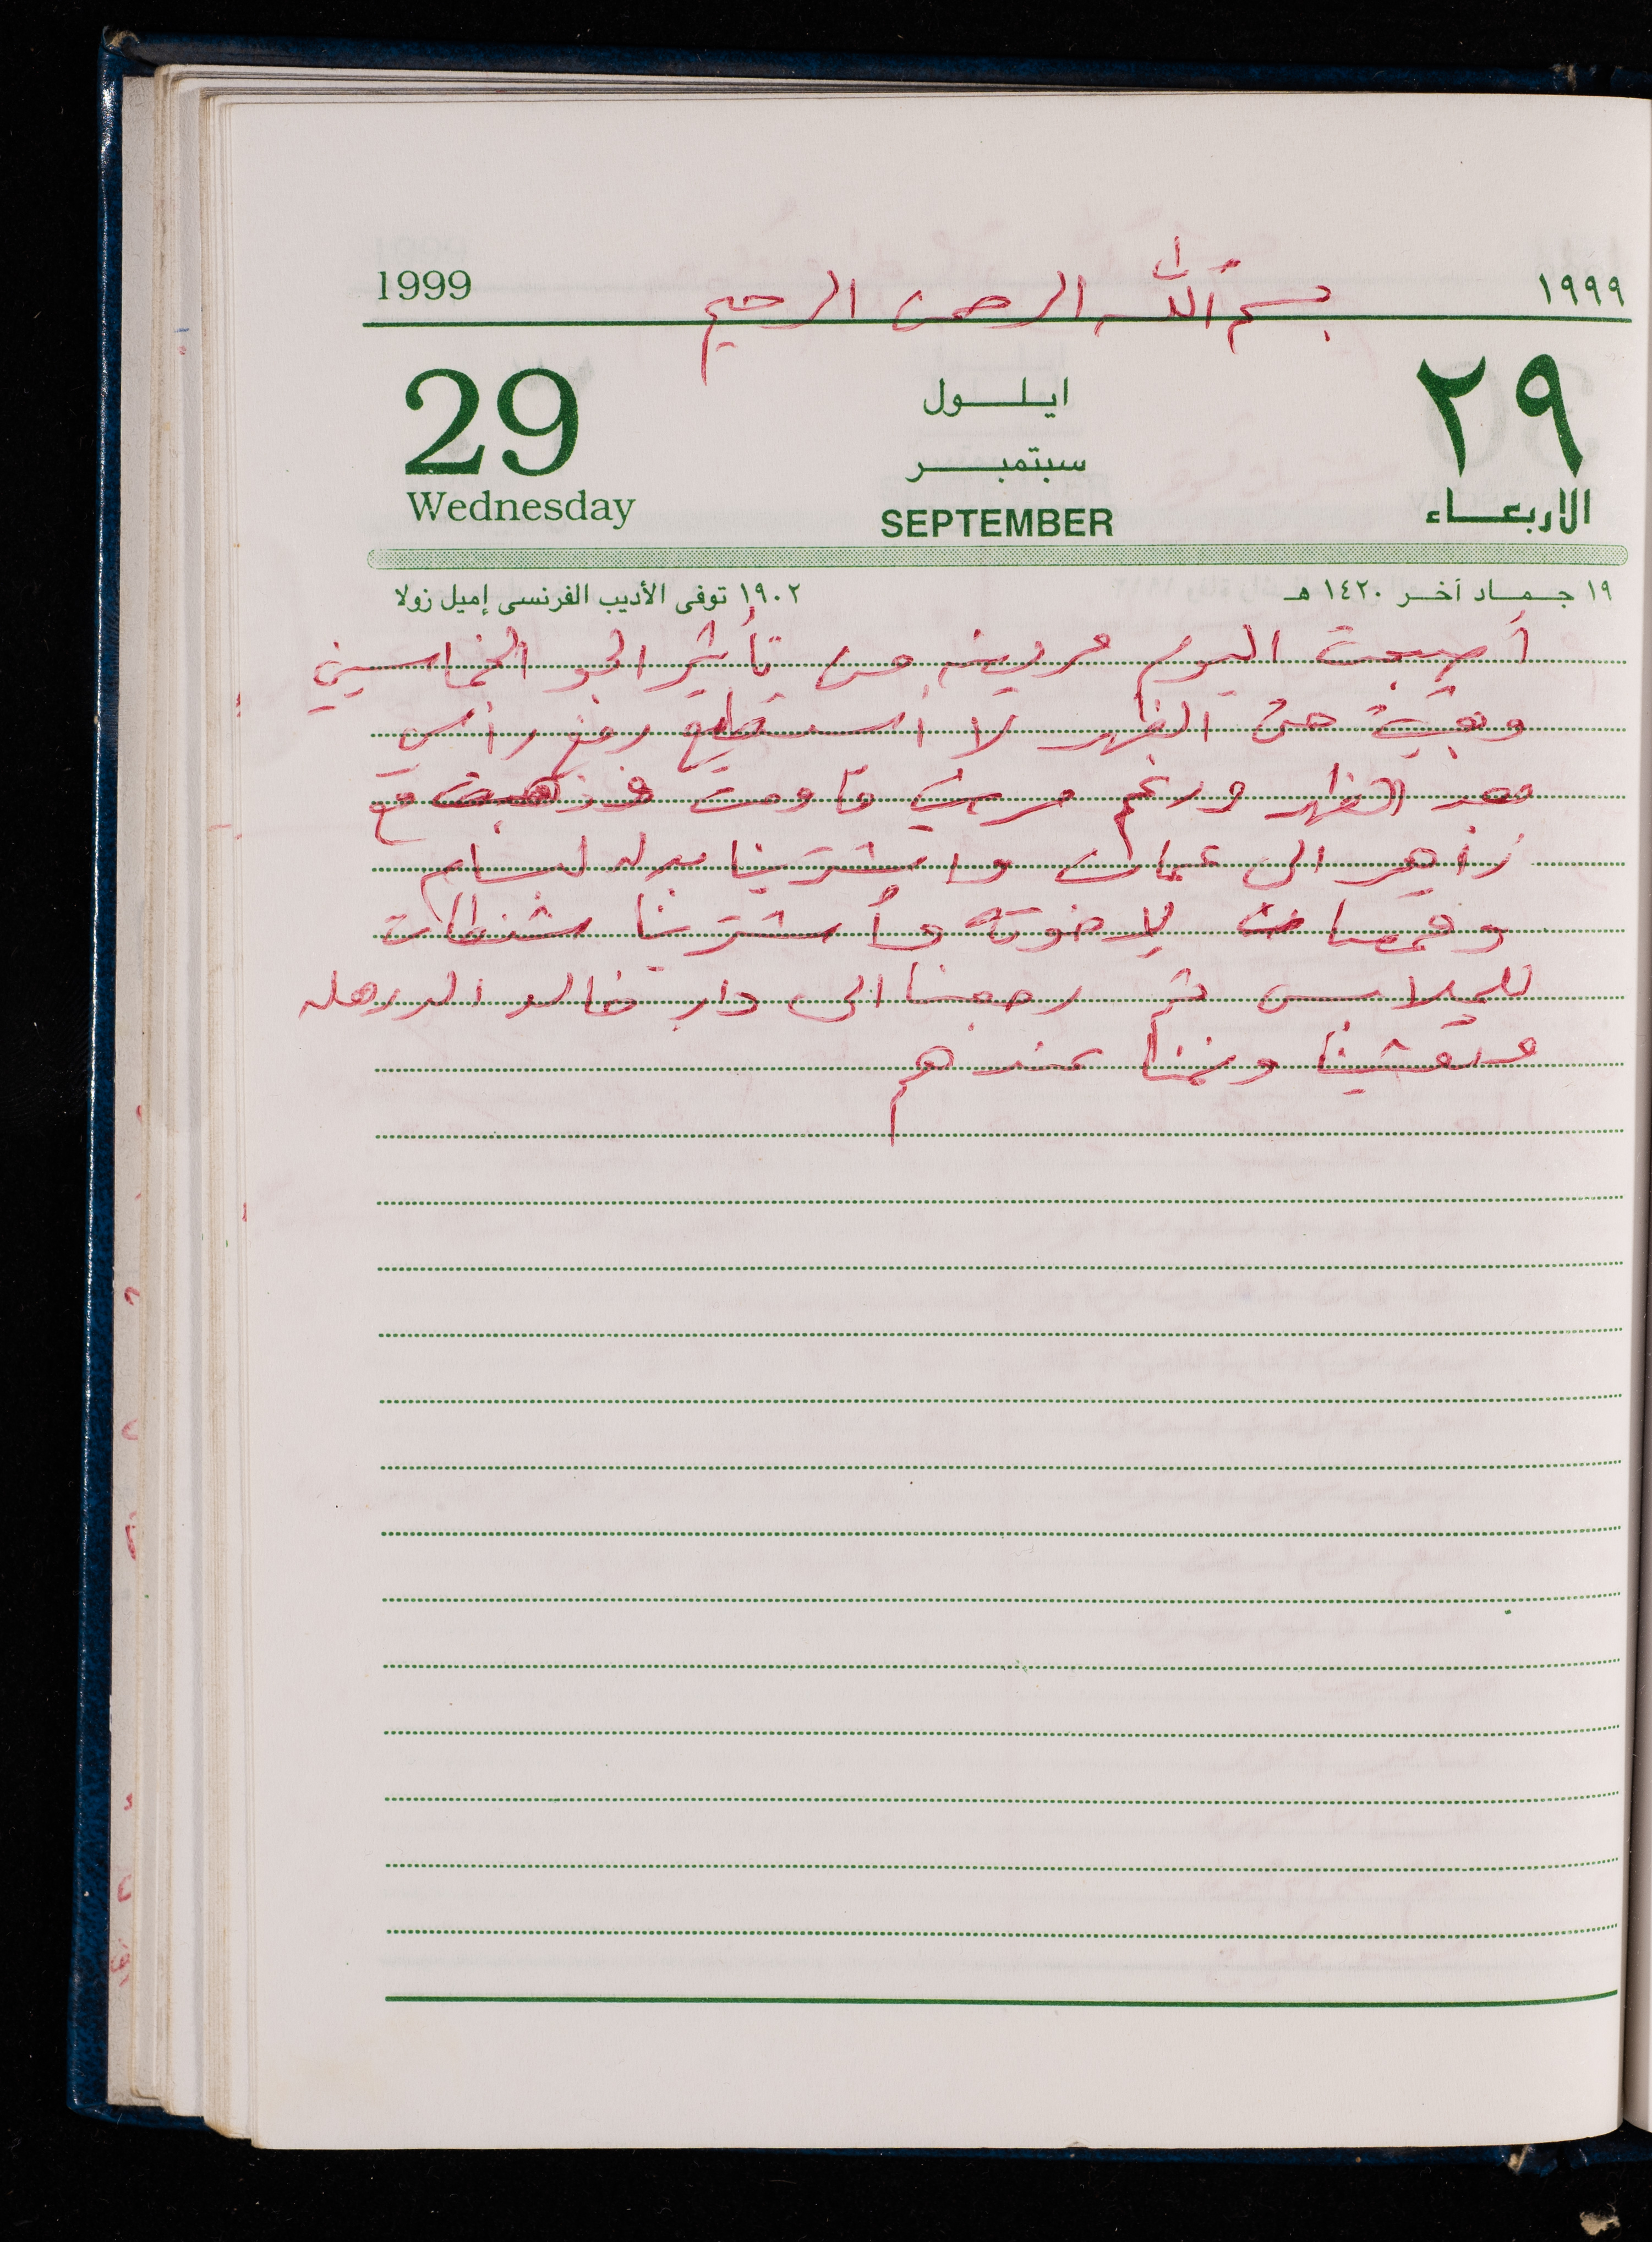 بسم الله الرحمن الرحيم
1999 ١٩٩٩
29 ايلول ٢٩
سبتمبر
Wednesday SEPTEMBER الاربعاء
١٩ جماد آخر ١٤٢٠ هـ ١٩٠٢ توفى الأديب الفرنسى إميل زولا
أصبحت اليوم مريضه من تأثير الجو الخماسيني
وبقيت حتى الظهر لا أستطيع رفع رأسي
بعد الظهر ورغم مرضي قاومت فذهبت مع
زاهر الى عمان واشترينا بدله لبسام
وقمصان لاخوته وأشترينا شنطات
للملابس ثم رجعنا الى دار خالد
وتعشينا ونمنا عندهم